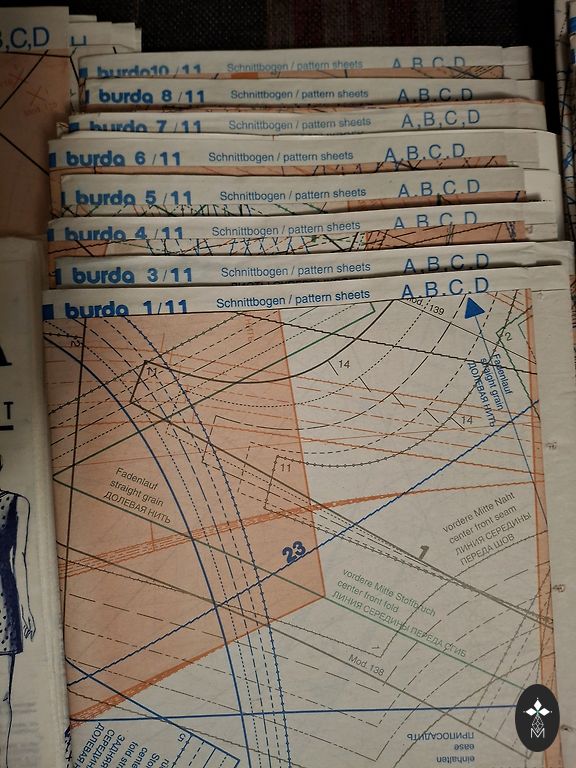 B,C,D
burda 10/11 Schnittbogen / pattern sheets A,B,C,D
burda 8/11 Schnittbogen / pattern sheets A,B,C,D
burda 7/11 Schnittbogen / pattern sheets A,B,C,D
burda 6/11 Schnittbogen / pattern sheets A,B,C,D
burda 5/11 Schnittbogen / pattern sheets A,B,C,D
burda 4/11 Schnittbogen / pattern sheets A,B,C,D
burda 3/11 Schnittbogen / pattern sheets A,B,C,D
burda 1/11 Schnittbogen / pattern sheets A,B,C,D
Mod. 139
12
21
14
14
Fadenlauf
straight grain
ДОЛЕВАЯ НИТЬ
11
Fadenlauf
straight grain
ДОЛЕВАЯ НИТЬ
vordere Mitte Naht
center front seam
ЛИНИЯ СЕРЕДИНЫ
ПЕРЕДА ШОВ
1
23
vordere Mitte Stoffbruch
center front fold
ЛИНИЯ СЕРЕДИНЫ ПЕРЕДА СГИБ
Mod. 138
einhalten
ease
ПРИПОСАДИТЬ
M